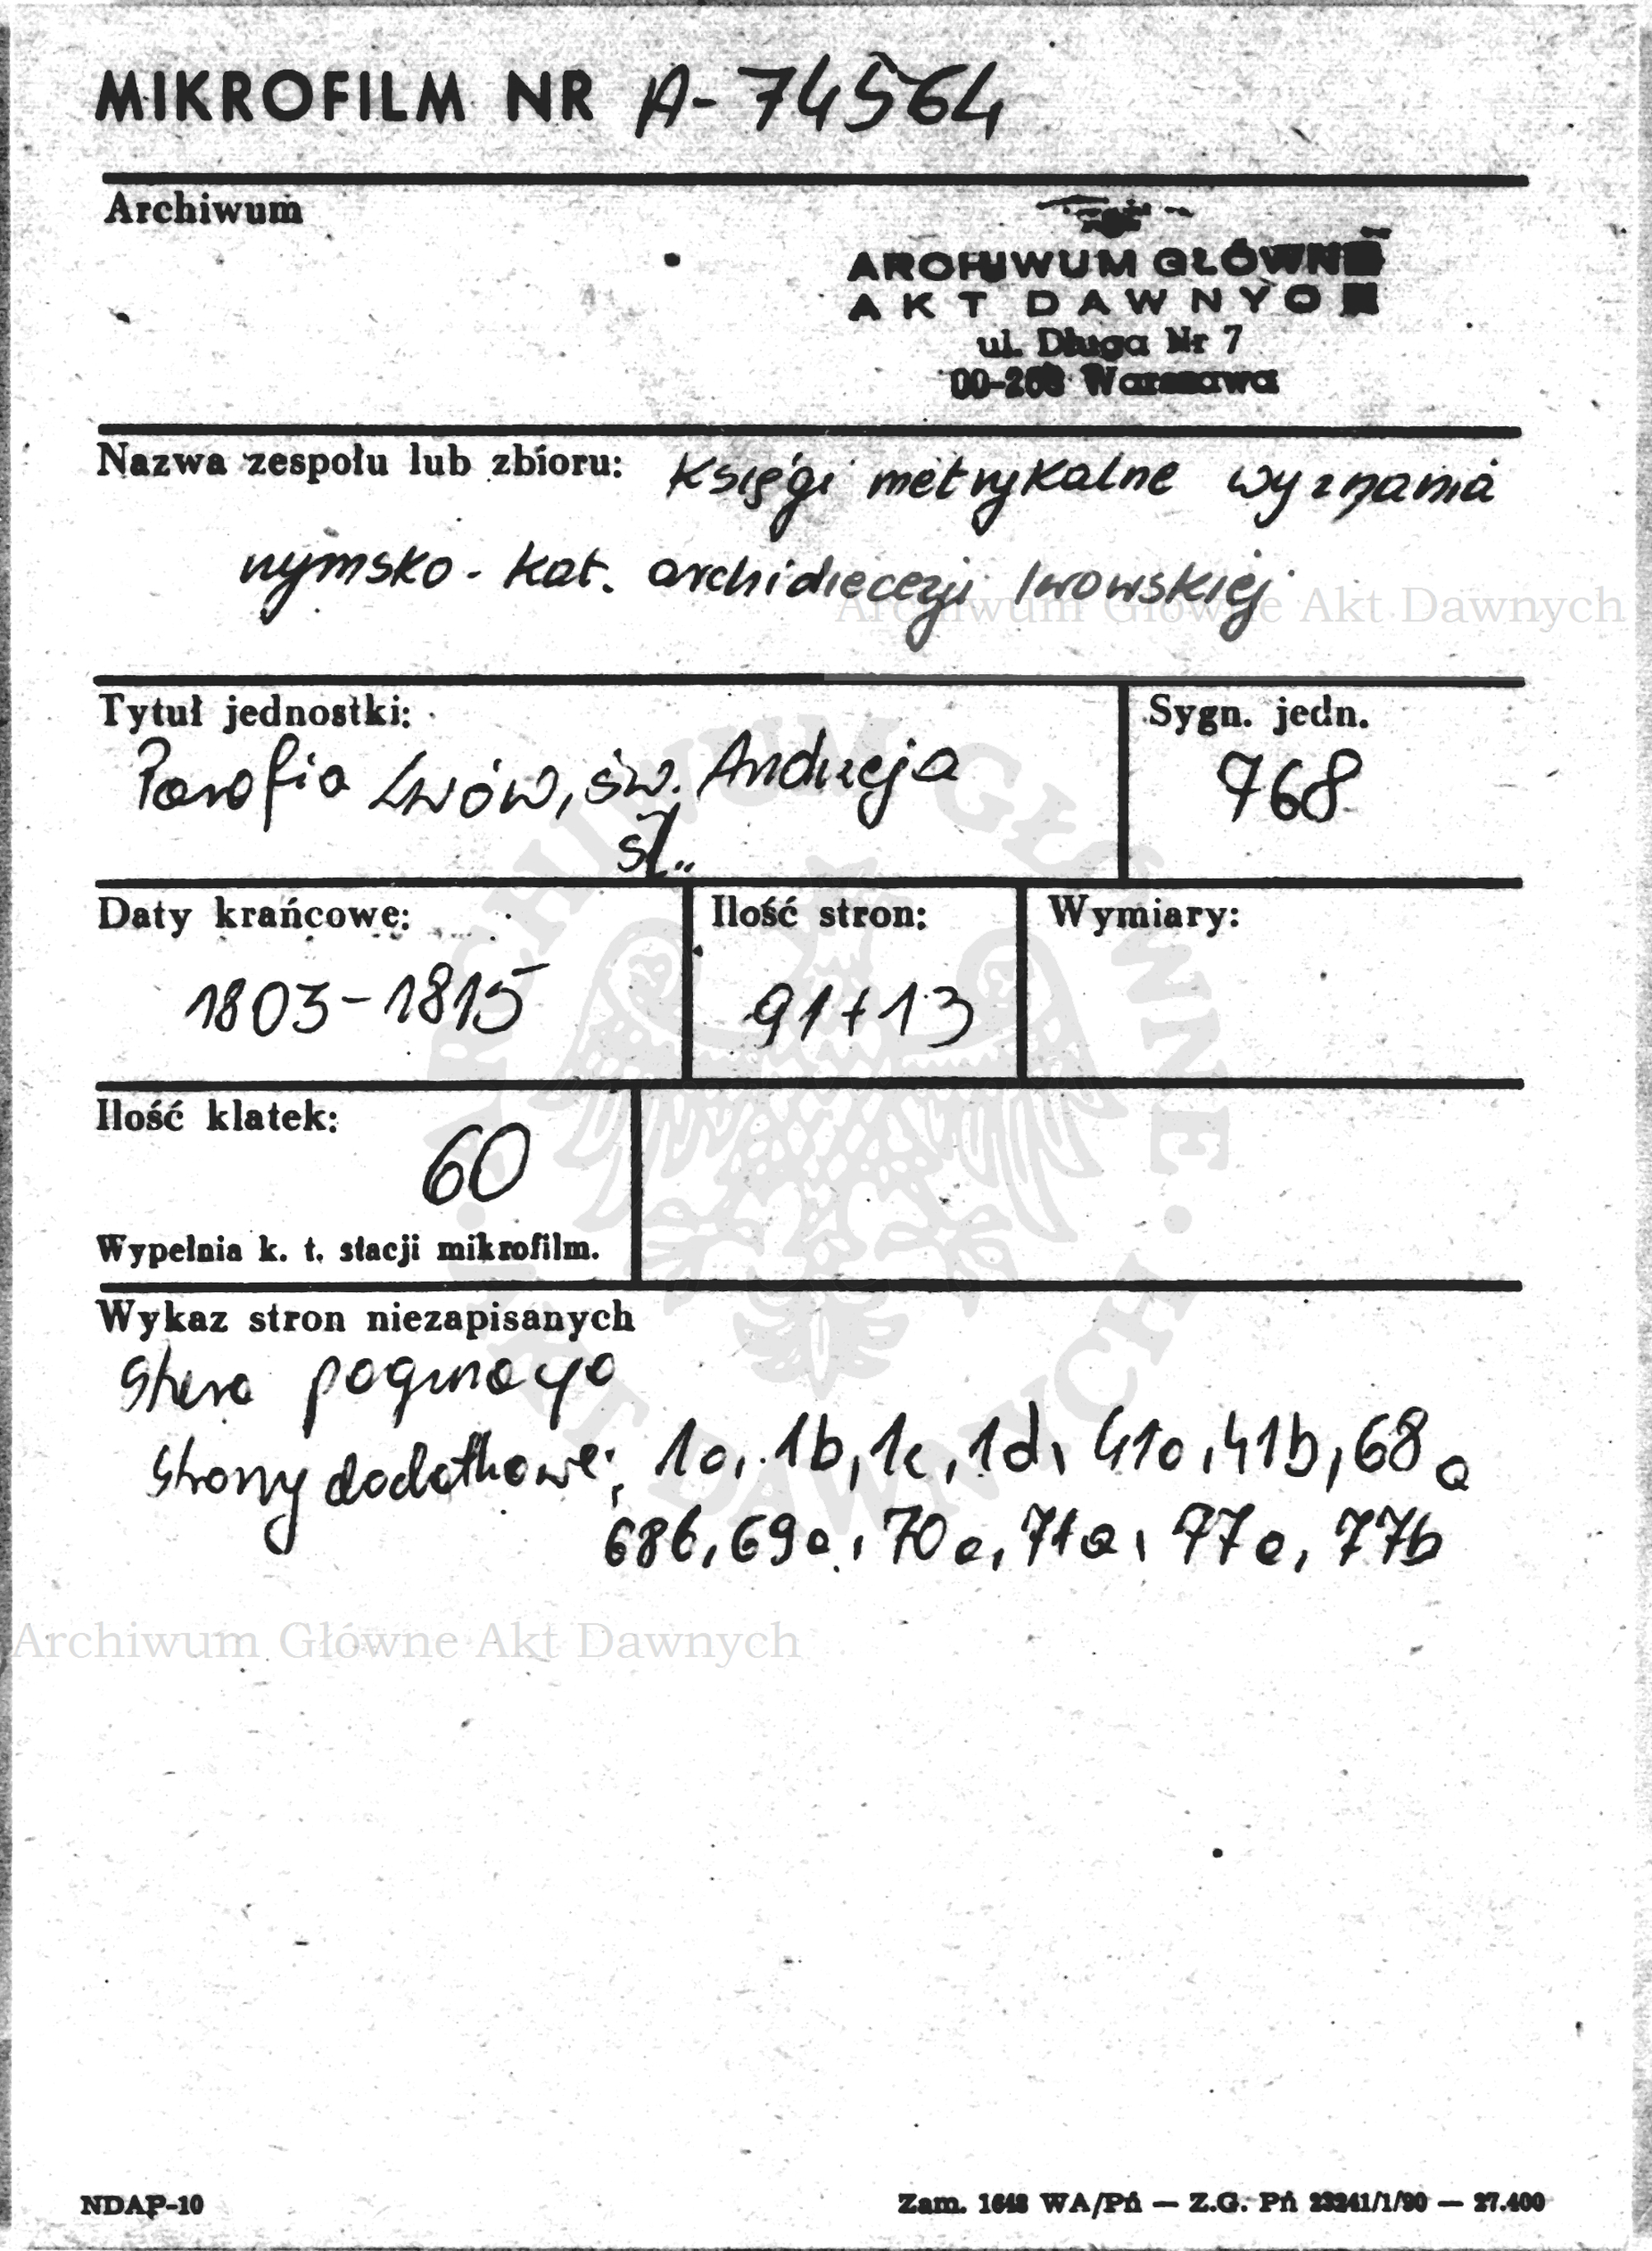 MIKROFILM NR A-74564
Archiwum
ARCHIWUM GŁÓWNE
AKT DAWNYCH
ul. Długa Nr 7
00-263 Warszawa
Nazwa zespołu lub zbioru: Księgi metrykalne wyznania
rzymsko-kat. archidiecezji lwowskiej
Archiwum Główne Akt Dawnych
Tytuł jednostki:
Sygn. jedn.
Parafia Lwów, św. Andrzeja
768
śl.
Daty krańcowe:
Ilość stron:
Wymiary:
1803-1815
91+13
Ilość klatek:
60
Wypełnia k. t. stacji mikrofilm.
Wykaz stron niezapisanych
Stara paginacja
Strony dodatkowe: 1a, 1b, 1c, 1d, 41a, 41b, 68a
68b, 69a, 70a, 71a, 77a, 77b
Archiwum Główne Akt Dawnych
ARCHIWUM GŁÓWNE · AKT DAWNYCH ·
NDAP-10
Zam. 1648 WA/Pń — Z.G. Pń 23241/1/90 — 27.400